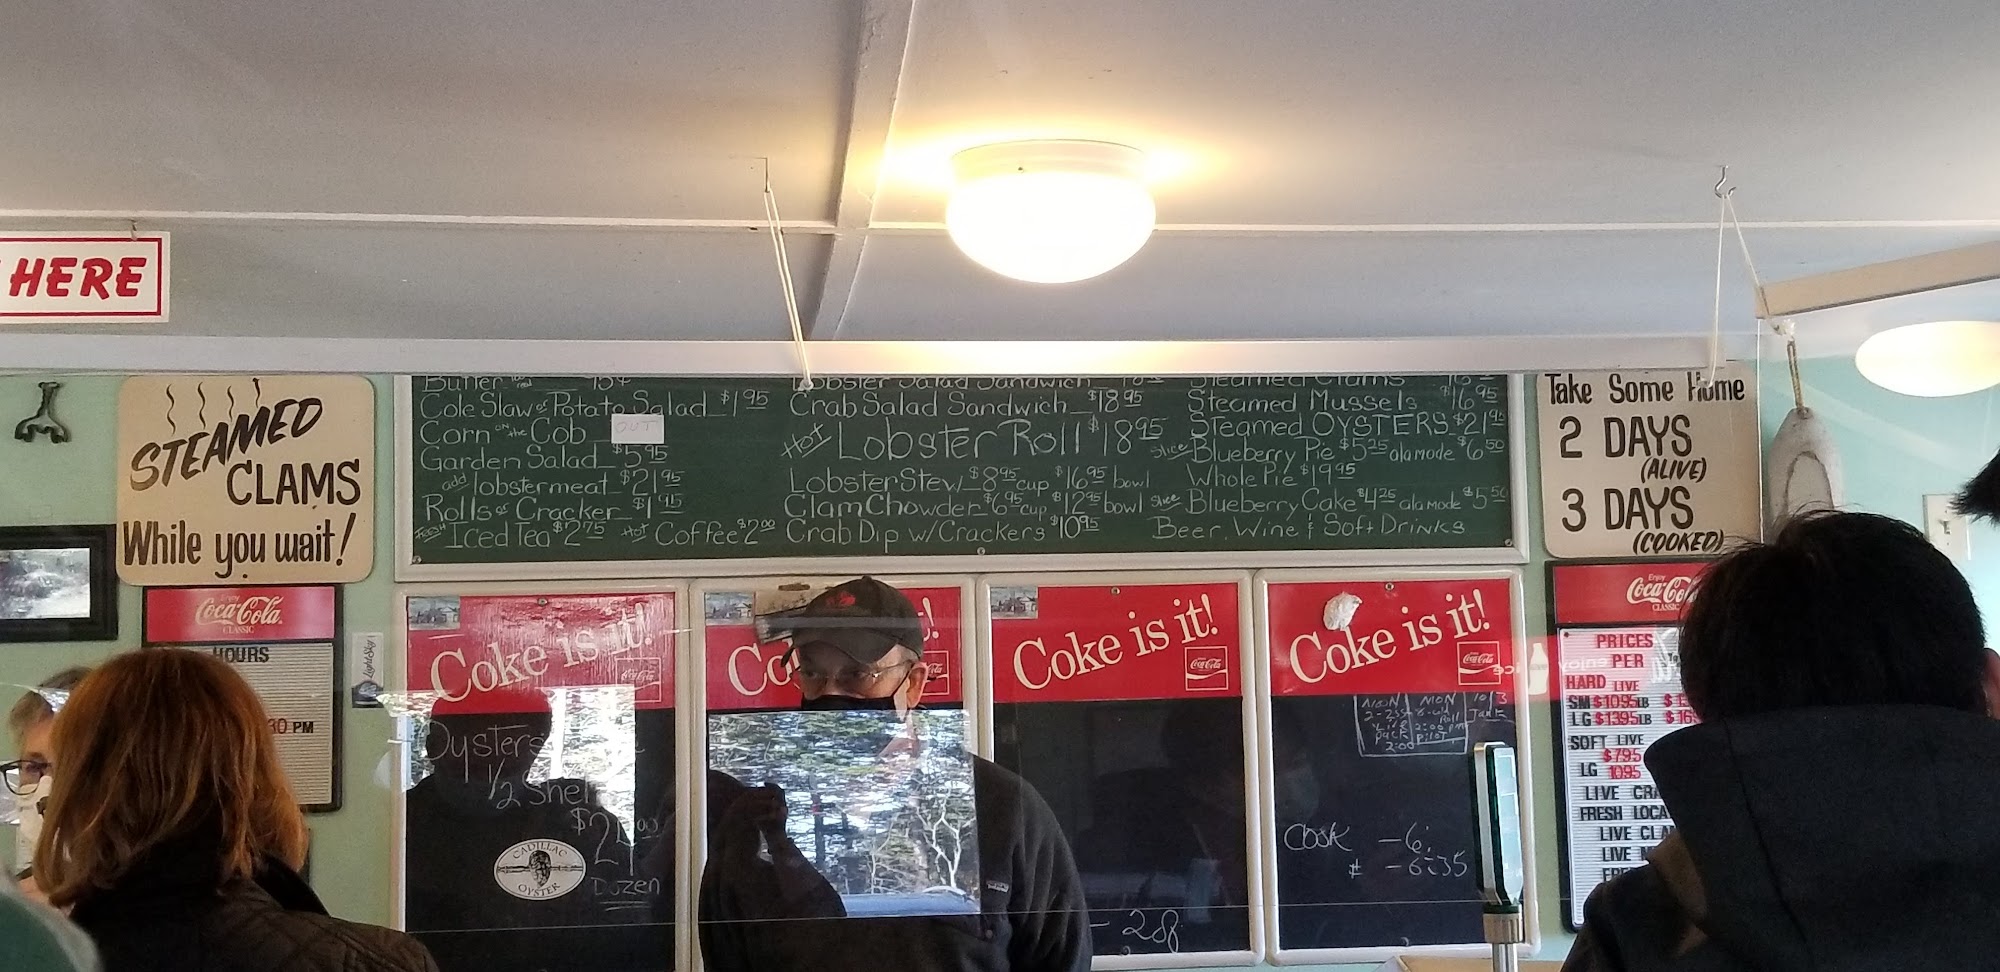 HERE
STEAMED
CLAMS
While you wait!
Butter
Cole Slaw or Potato Salad $1.95
Corn on the Cob OUT
Garden Salad $5.95
add lobstermeat $21.95
Rolls or Cracker $1.95
Fresh Iced Tea $2.75 Hot Coffee $2.00
Lobster Salad Sandwich
Crab Salad Sandwich $18.95
HOT LOBSTER ROLL $18.95
Lobster Stew $8.95 cup $16.95 bowl
Clam Chowder $6.95 cup $12.95 bowl
Crab Dip w/Crackers $10.95
Steamed Clams
Steamed Mussels $16.95
Steamed OYSTERS $21.95
Slice Blueberry Pie $5.25 alamode $6.50
Whole Pie $19.95
Slice Blueberry Cake $4.25 alamode $5.50
Beer, Wine & Soft Drinks
Take Some Home
2 DAYS
(ALIVE)
3 DAYS
(COOKED)
Enjoy
Coca-Cola
CLASSIC
HOURS
30 PM
Coke is it!
Coca-Cola
Oysters
1/2 Shell
Dozen
CADILLAC
OYSTER
Coke is it!
Coca-Cola
- 28
Coke is it!
Coca-Cola
MON
2:00
COOK - 6:
- 6:35
Enjoy
Coca-Cola
CLASSIC
PRICES
PER
HARD LIVE
SM $10.95 LB
LG $13.95 LB
SOFT LIVE
$7.95
LG 10.95
LIVE
FRESH
LIVE
LIVE